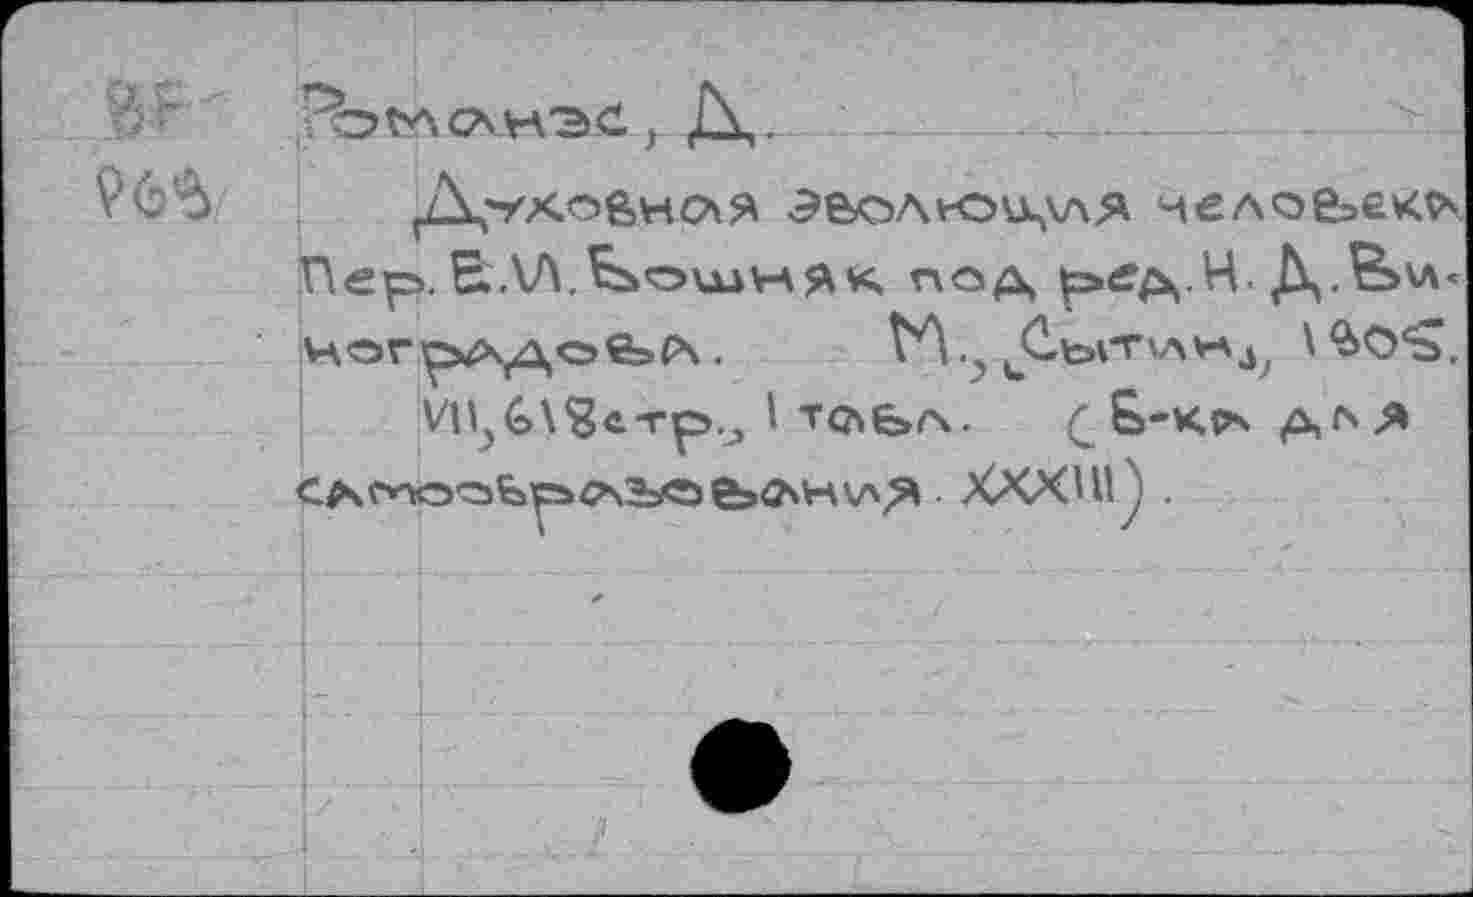 BF Ромэнэс, Д.
Р63 Духовная эволюция человека
Пер. Е.И. Бошняк под ред. Н. Д. Ви-
ноградова. М., Сытин, 1905.
VII, 618 стр., 1 табл. (Б-ка для
самообразования. XXXIII).